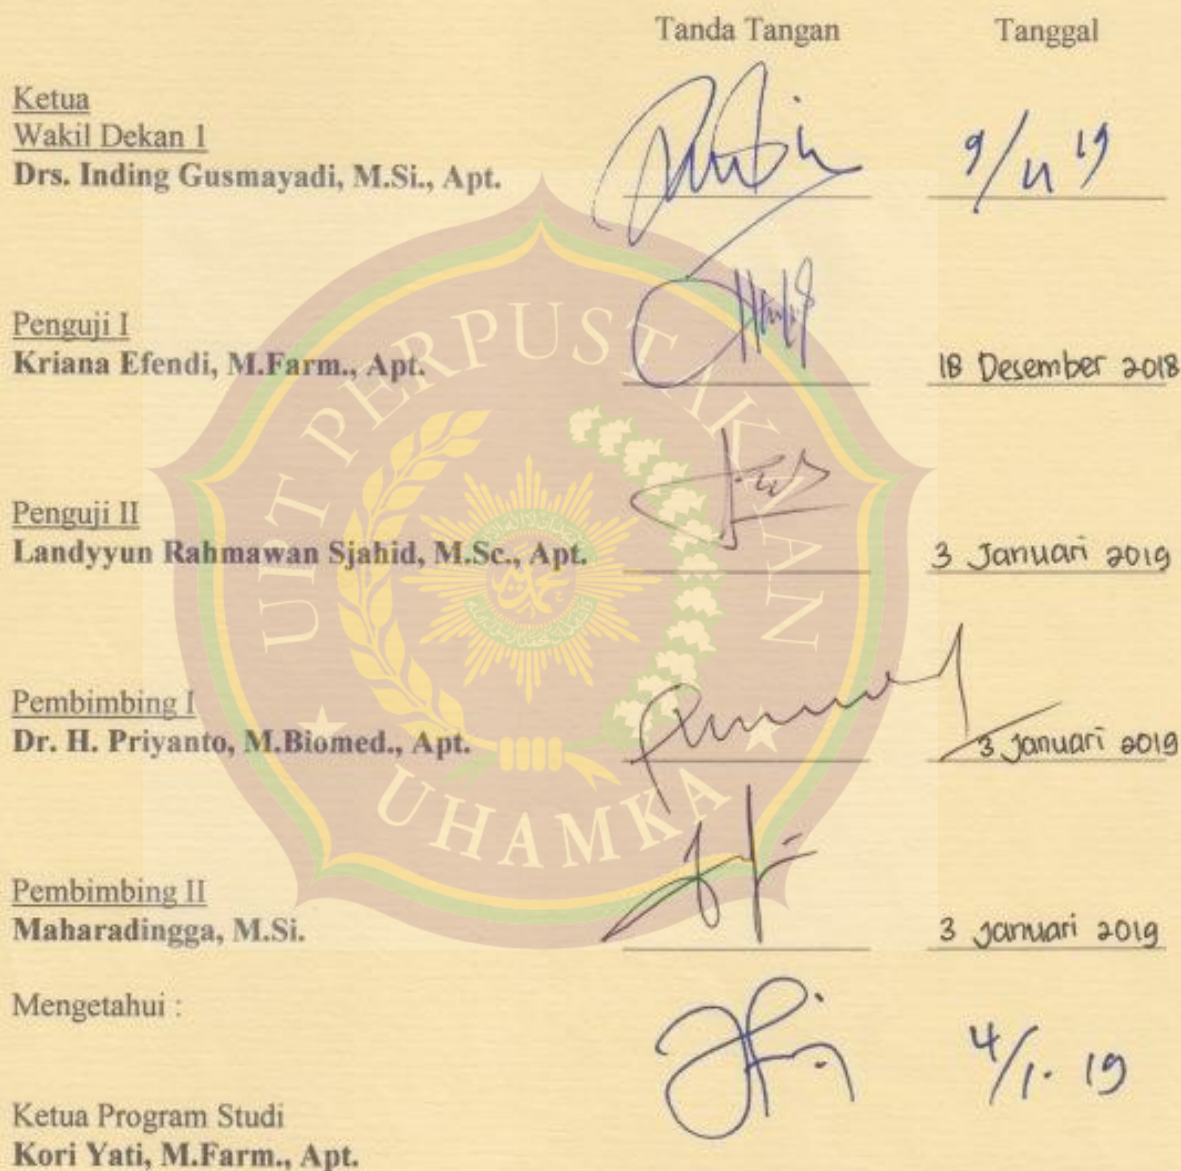 Tanda Tangan Tanggal
Ketua
Wakil Dekan 1
Drs. Inding Gusmayadi, M.Si., Apt. 9/11 19
Penguji I
Kriana Efendi, M.Farm., Apt. 18 Desember 2018
Penguji II
Landyyun Rahmawan Sjahid, M.Sc., Apt. 3 Januari 2019
Pembimbing I
Dr. H. Priyanto, M.Biomed., Apt. 3 Januari 2019
Pembimbing II
Maharadingga, M.Si. 3 Januari 2019
Mengetahui :
4/1. 19
Ketua Program Studi
Kori Yati, M.Farm., Apt.
UPT PERPUSTAKAAN
UHAMKA